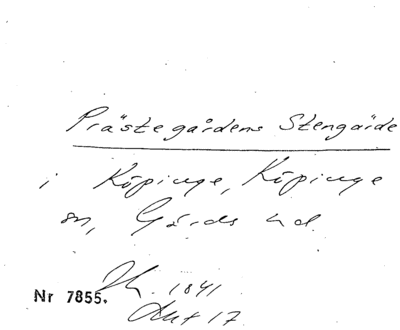 Prästegårdens Stengärde
i Köpinge, Köpinge
sn, Gärds hd.
1841
Nr 7855.
Akt 17.